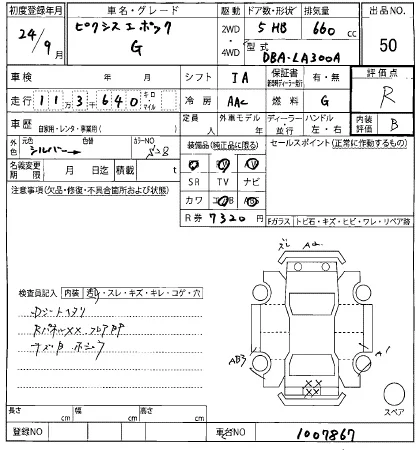 初度登録年月 車名・グレード 駆動 ドア数・形状 排気量 出品NO.
24/9月 ピクシスエポック G 2WD・4WD 5 HB 660 cc 50
型式 DBA-LA300A
車検 年 月 シフト IA 保証書 有・無 評価点
走行 11万3千640 キロ・マイル 冷房 AAC 燃料 G R
車歴 自家用・レンタ・事業用( ) 定員 人 外車モデル 年 ディーラー・並行 ハンドル 左・右 内装評価 B
外色 元色 シルバー 色替 カラーNO
装備品(純正品に限る) セールスポイント(正常に作動するもの)
名義変更期限 月 日迄 積載 t
SR TV ナビ
注意事項(欠品・修復・不具合箇所および状態)
カワ
R券 7320円
Fガラス トビ石・キズ・ヒビ・ワレ・リペア跡
ズレ
検査員記入 内装 ・スレ・キズ・キレ・コゲ・穴
AB3 A1
XX
XX
スペア
長さ cm 幅 cm 高さ cm
登録NO 車台NO 1007867